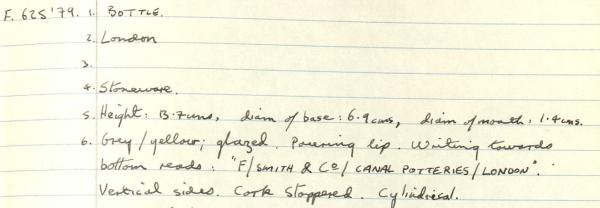 F. 625'79. 1. BOTTLE.
2. London
3.
4. Stoneware.
5. Height: 13.7cms, diam of base: 6.9cms, diam of mouth: 1.4cms.
6. Grey/yellow; glazed. Pouring lip. Writing towards
bottom reads: "F/SMITH & Co/CANAL POTTERIES/LONDON".
Vertical sides. Cork stoppered. Cylindrical.